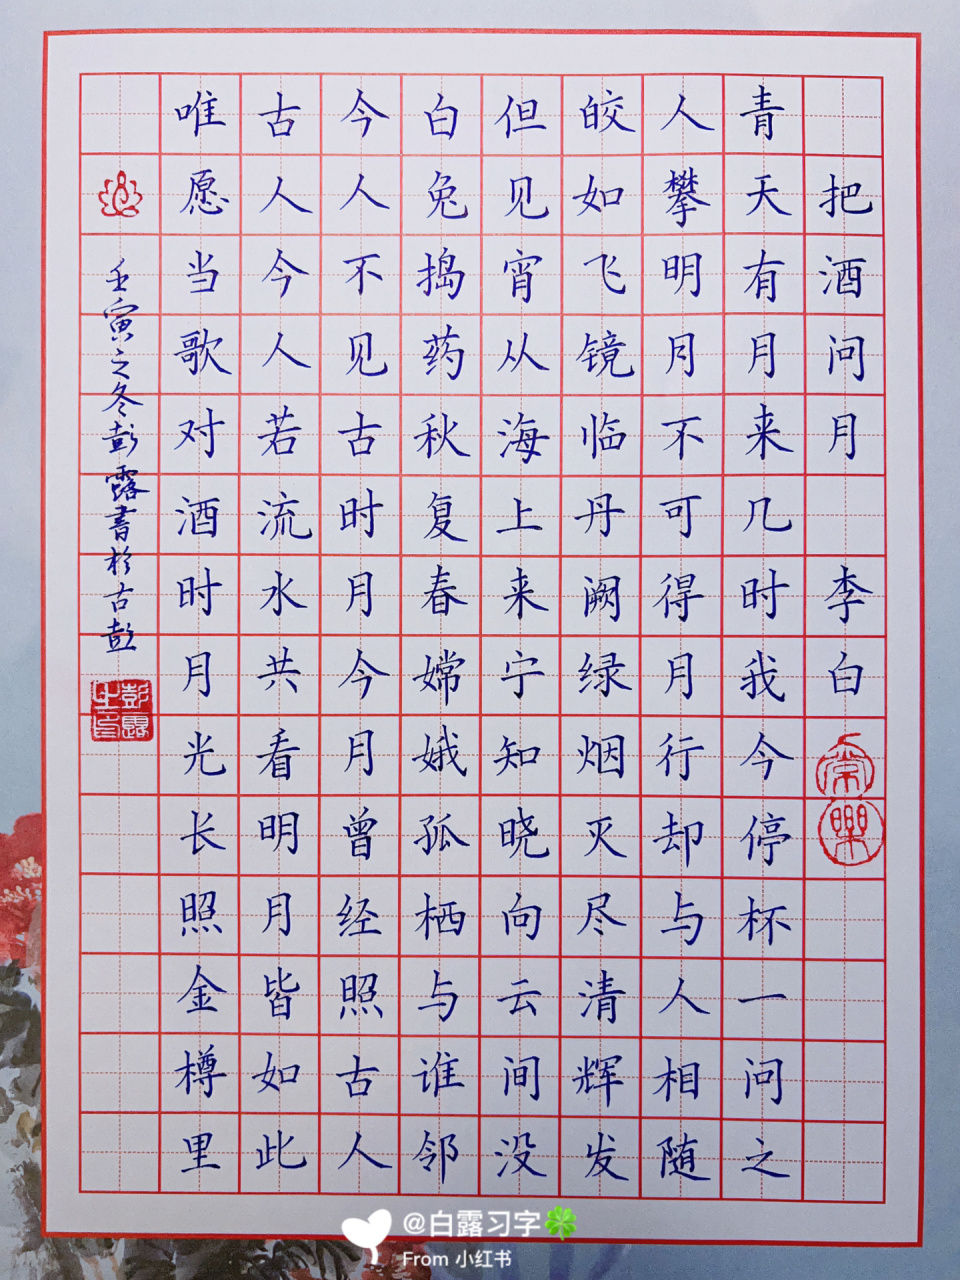 把酒问月 李白
常樂
青天有月来几时我今停杯一问之
人攀明月不可得月行却与人相随
皎如飞镜临丹阙绿烟灭尽清辉发
但见宵从海上来宁知晓向云间没
白兔捣药秋复春嫦娥孤栖与谁邻
今人不见古时月今月曾经照古人
古人今人若流水共看明月皆如此
唯愿当歌对酒时月光长照金樽里
壬寅之冬彭露書於古彭
彭露之印
@白露习字
From 小红书